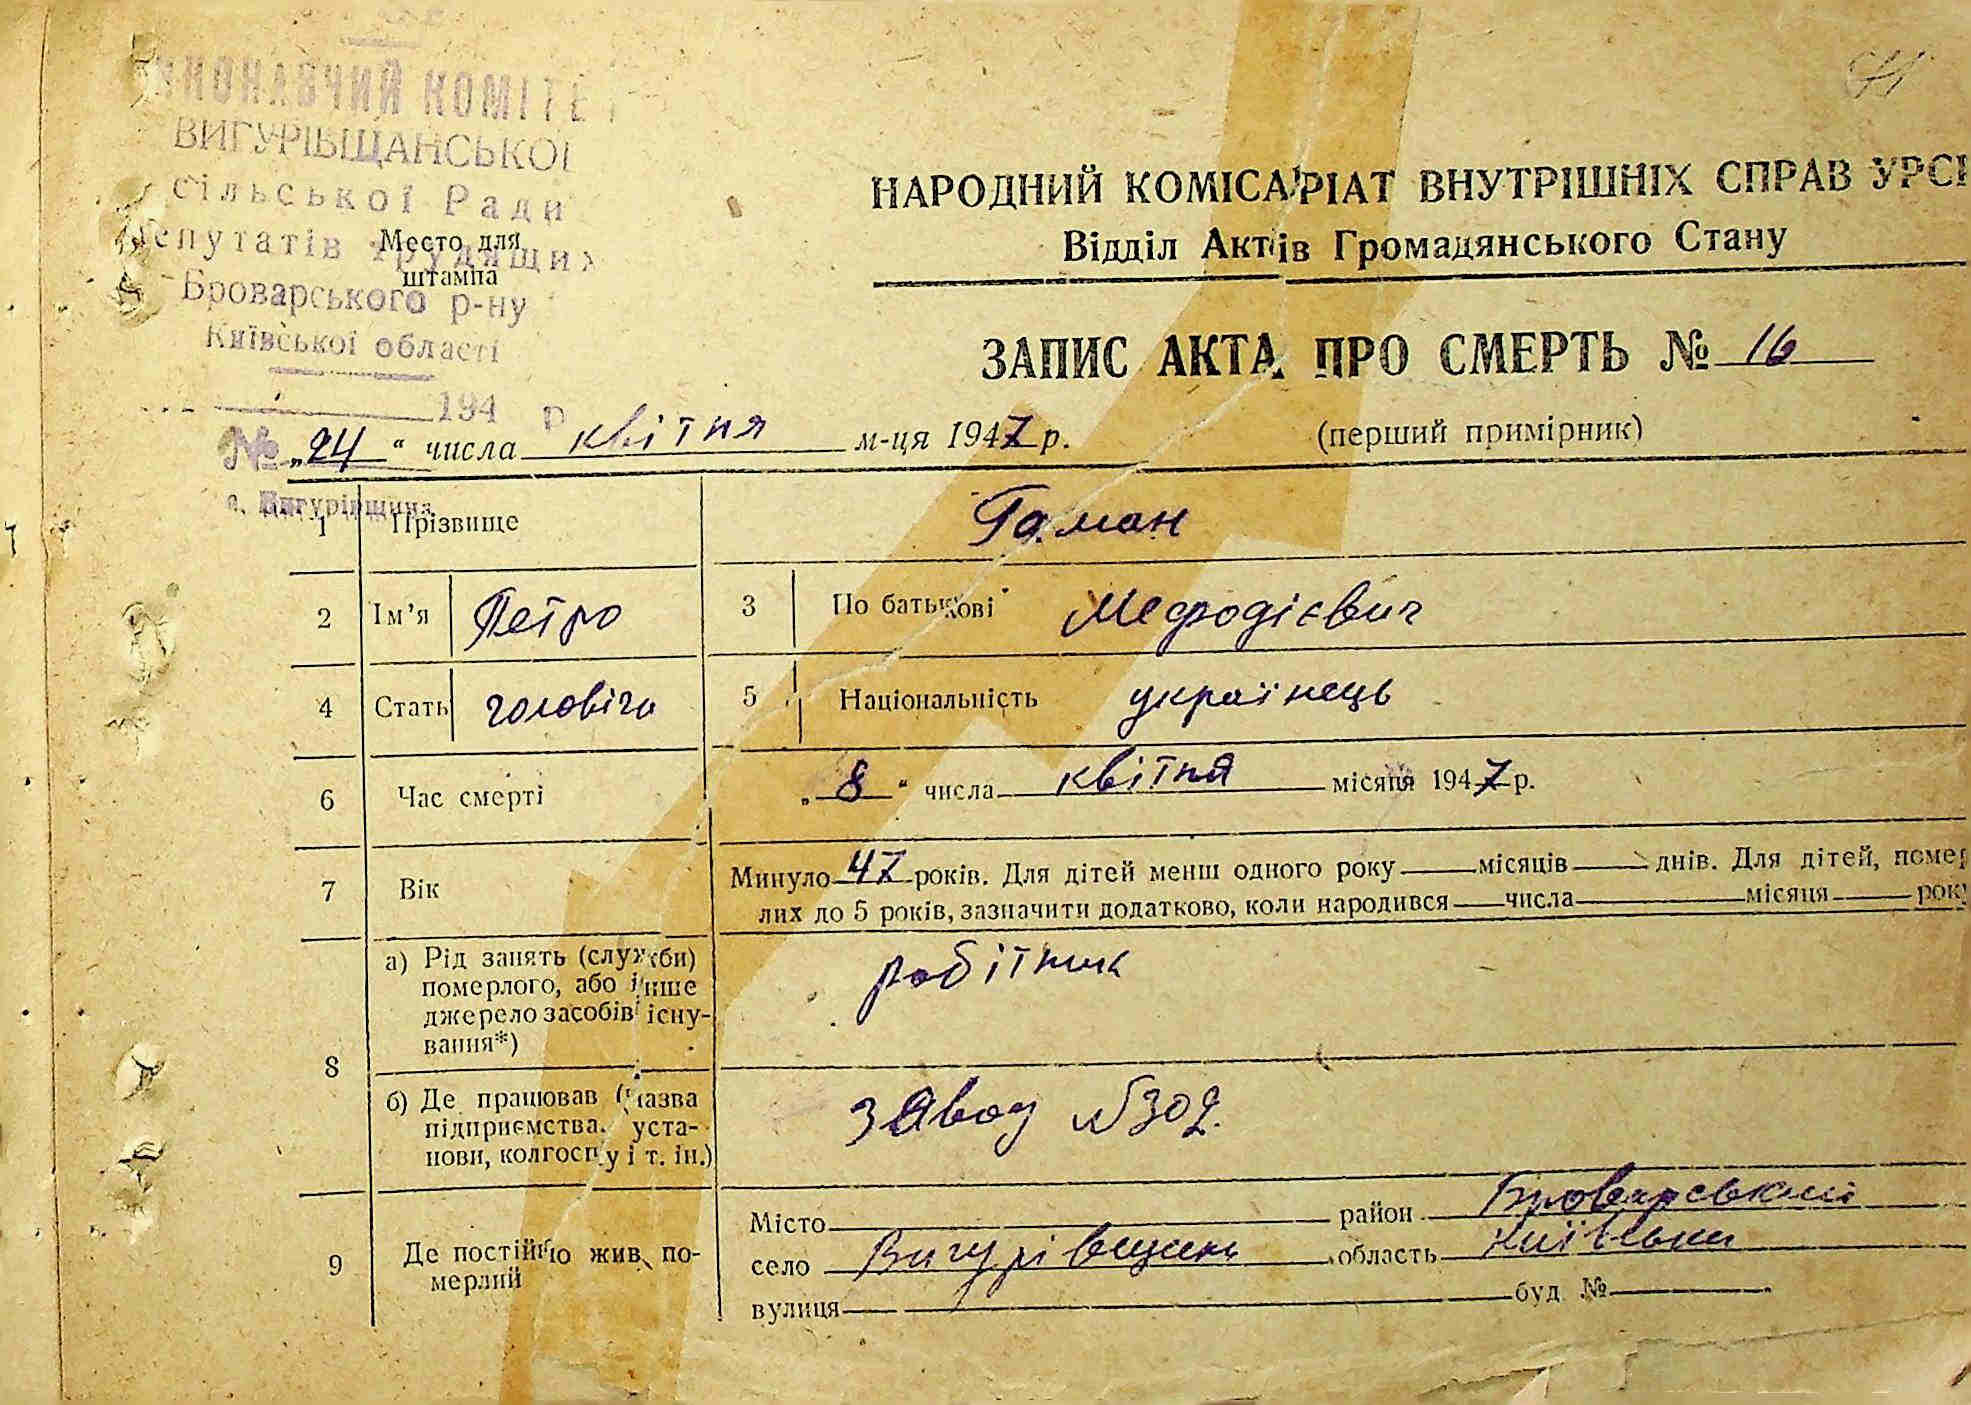 ИКОНАВЧИЙ КОМІТЕТ
ВИГУРІВЩАНСЬКОЇ
сільської Ради
депутатів трудящих
Место для
штампа
Броварського р-ну
Київської області
194 р
№
с. Вигурівщина
НАРОДНИЙ КОМІСАРІАТ ВНУТРІШНІХ СПРАВ УРСР
Відділ Актів Громадянського Стану
ЗАПИС АКТА ПРО СМЕРТЬ № 16
„24“ числа квітня м-ця 1947 р.
(перший примірник)
1 Прізвище Гаман
2 Ім'я Петро 3 По батькові Мефодієвич
4 Стать чоловіча 5 Національність українець
6 Час смерті „8“ числа квітня місяця 1947 р.
7 Вік Минуло 47 років. Для дітей менш одного року місяців днів. Для дітей, помер
лих до 5 років, зазначити додатково, коли народився числа місяця року
8 а) Рід занять (служби)
померлого, або інше
джерело засобів існу-
вання*)
робітник
б) Де працював (назва
підприємства, уста-
нови, колгоспу і т. ін.)
завод №302.
9 Де постійно жив по-
мерлий
Місто район Броварський
село Вигурівщина область Київська
вулиця буд №